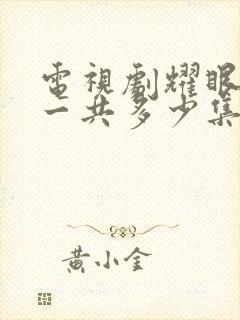 電視劇耀眼
一共多少集
黃小金